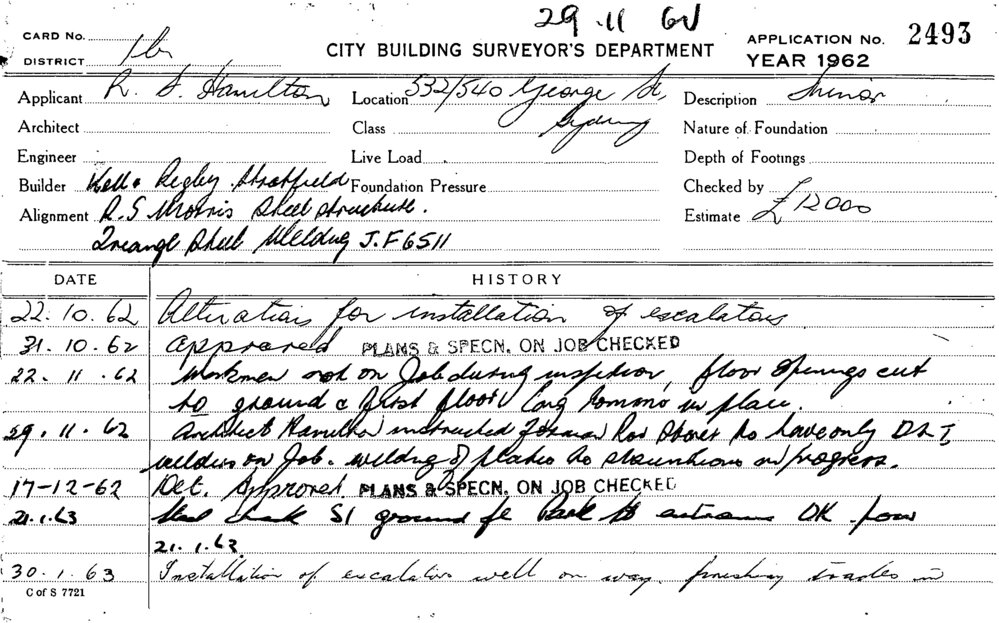 29.11.62
CARD No.
DISTRICT
CITY BUILDING SURVEYOR'S DEPARTMENT
APPLICATION No. 2493
YEAR 1962
Applicant R. S. Hamilton
Location 532/540 George St,
Sydney
Description
Architect
Class
Nature of Foundation
Engineer
Live Load
Depth of Footings
Builder Kell & Rigby Strathfield
Foundation Pressure
Checked by
Alignment R.S Morris Steel structure.
Estimate £12000
Triangl Steel Welding J.F6511
DATE HISTORY
22.10.62 Alterations for installation of escalators
31.10.62 approved PLANS & SPECN. ON JOB CHECKED
22.11.62 Workmen not on Job during inspection, floor openings cut
to ground & first floor in place.
29.11.62 Architect Hamilton instructed Foreman to have only D L I
welders on Job. welding of plates to stanchions in progress.
17-12-62 Det. Approved. PLANS & SPECN. ON JOB CHECKED
21.1.63 Steel ground fl Park St entrance OK pour
21.1.63.
30.1.63 Installation of escalators well on way. finishing trades in
C of S 7721